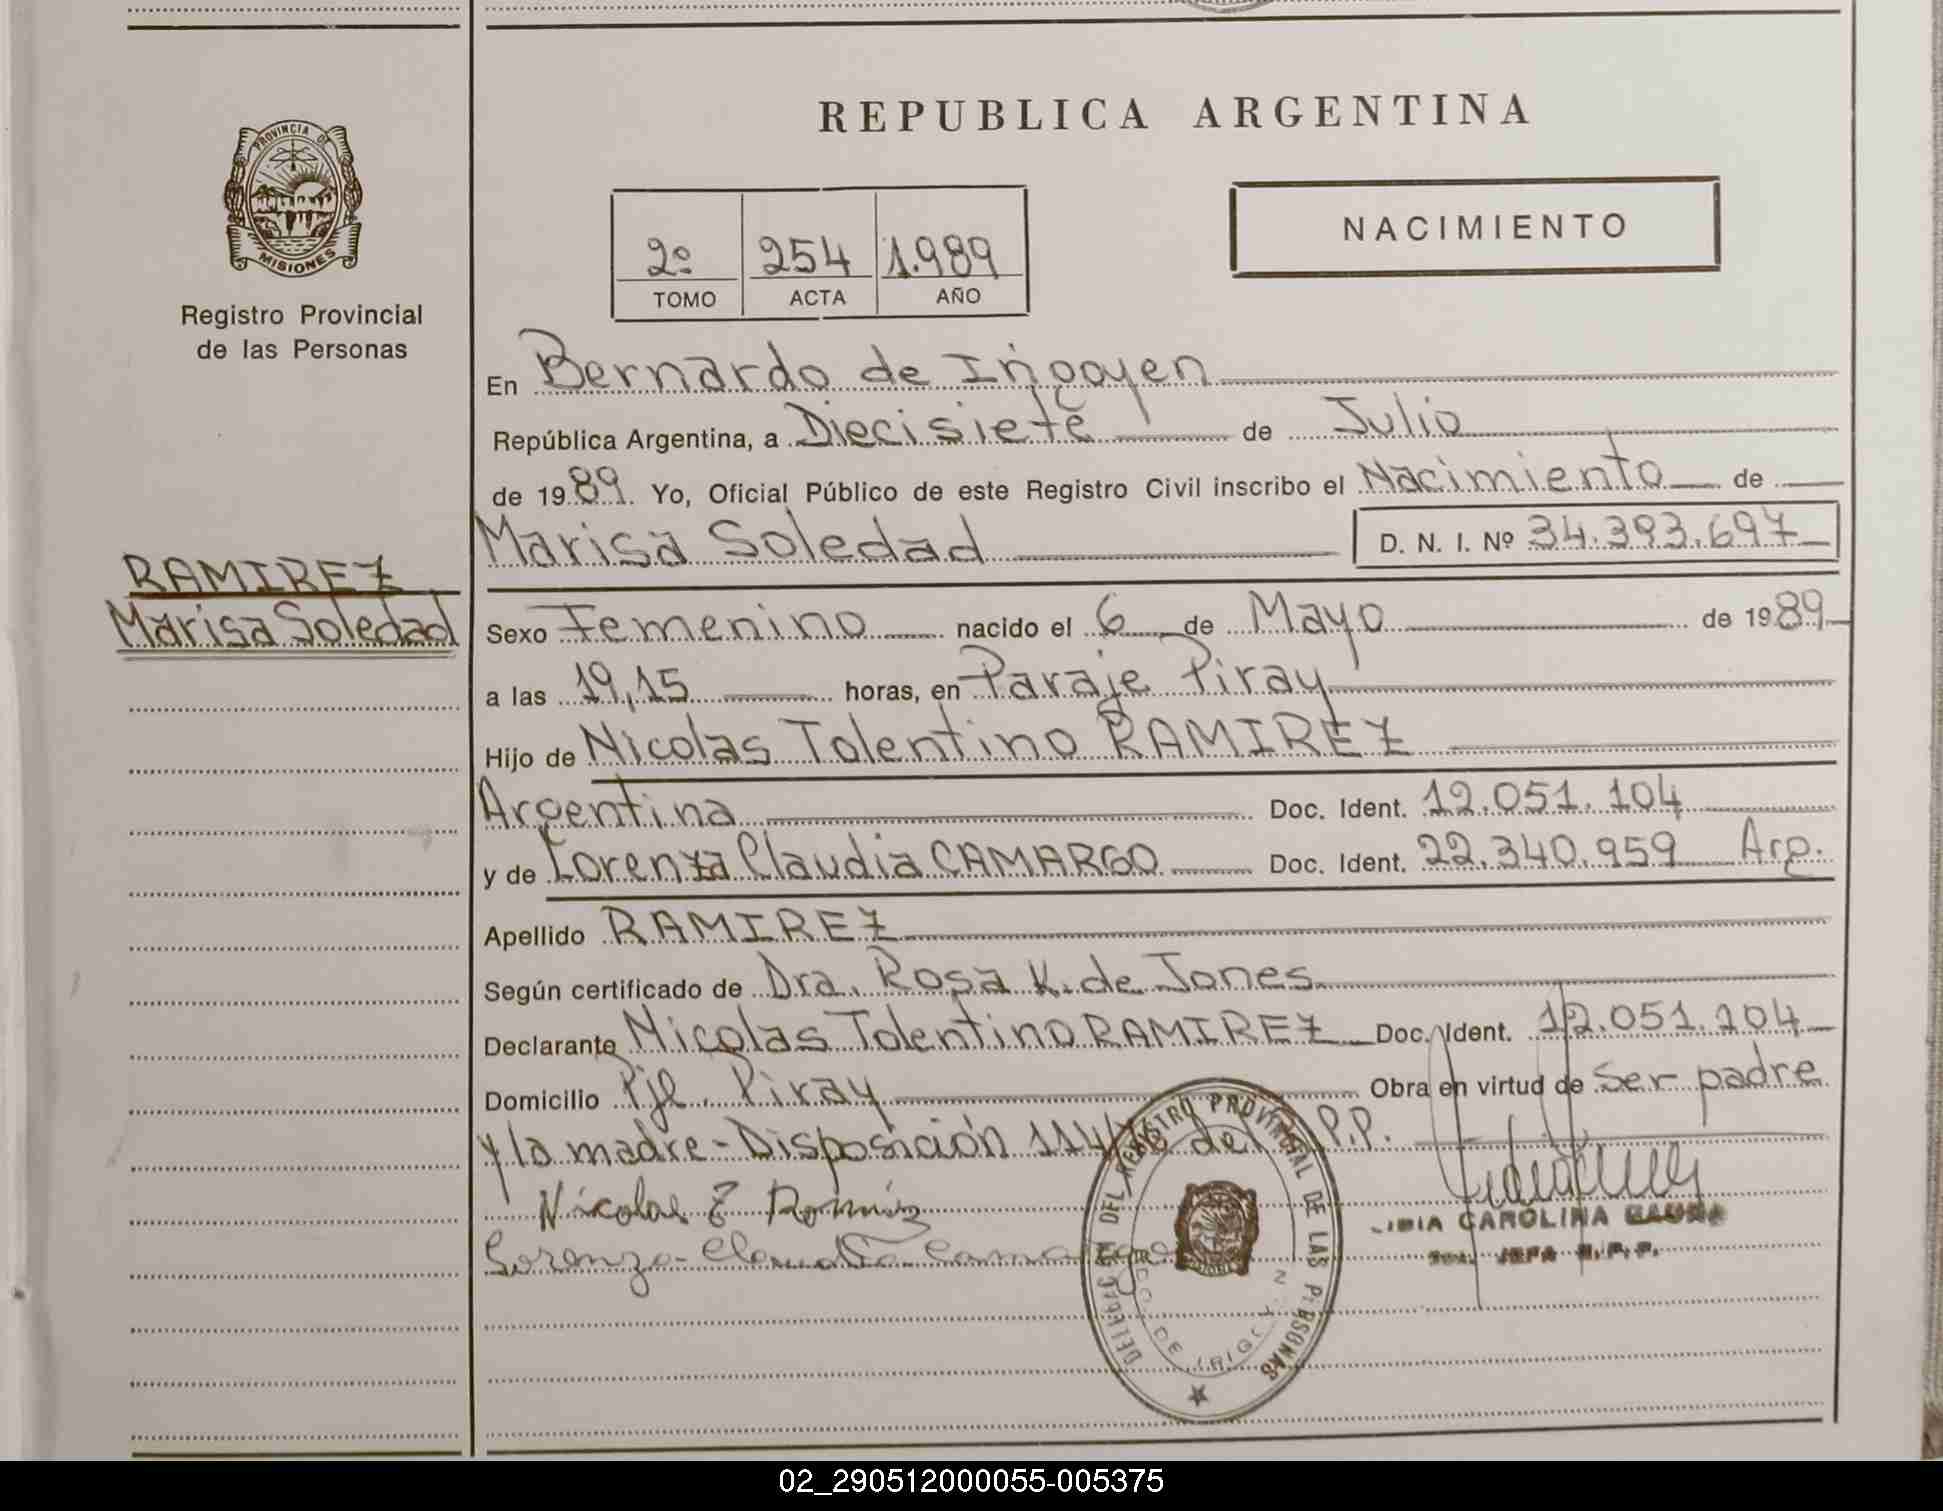 REPUBLICA ARGENTINA
PROVINCIA DE
MISIONES
Registro Provincial
de las Personas
NACIMIENTO
2º 254 1.989
TOMO ACTA AÑO
En Bernardo de Irigoyen
República Argentina, a Diecisiete de Julio
de 1989. Yo, Oficial Público de este Registro Civil inscribo el Nacimiento de
Marisa Soledad D. N. I. Nº 34.393.697
RAMIREZ
Marisa Soledad
Sexo Femenino nacido el 6 de Mayo de 1989
a las 19,15 horas, en Paraje Piray
Hijo de Nicolas Tolentino RAMIREZ
Argentina Doc. Ident. 12.051.104
y de Lorenza Claudia CAMARGO Doc. Ident. 22.340.959 Arg.
Apellido RAMIREZ
Según certificado de Dra. Rosa K. de Jones
Declarante Nicolas Tolentino RAMIREZ Doc. Ident. 12.051.104
Domicilio Pje. Piray Obra en virtud de ser padre
y la madre - Disposición 114/ del P.P.
Nicolas T Ramirez
Lorenza Claudia Camargo
DEL REGISTRO PROVINCIAL DE LAS PERSONAS
DE IRIGOYEN
CAROLINA
JEFA R.P.P.
02_290512000055-005375